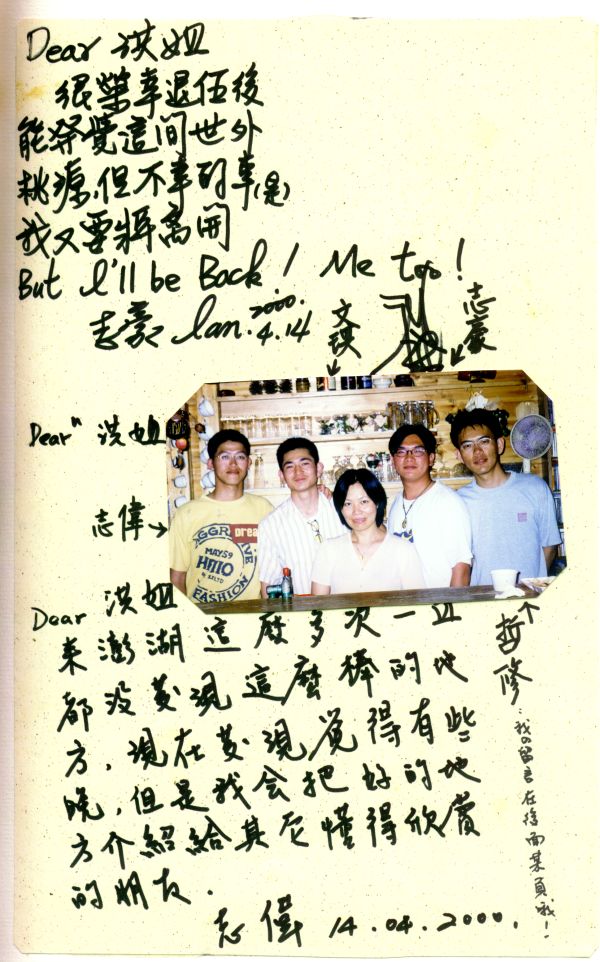 Dear 洪姐
很榮幸退伍後
能發覺這間世外
桃源,但不幸的事(是)
我又要將離開
But I'll be Back! Me too!
志豪 Jan. 2000. 4.14
文琪
志豪
Dear" 洪姐
志偉→
AGGR
prea
MAYS9
FASHION
Dear 洪姐
來澎湖這麼多次一直
都沒發現這麼棒的地
方,現在發現覺得有些
晚,但是我会把好的地
方介紹給其它懂得欣賞
的朋友.
志偉 14.04.2000.
哲修
:我的留言在後面某頁哦!